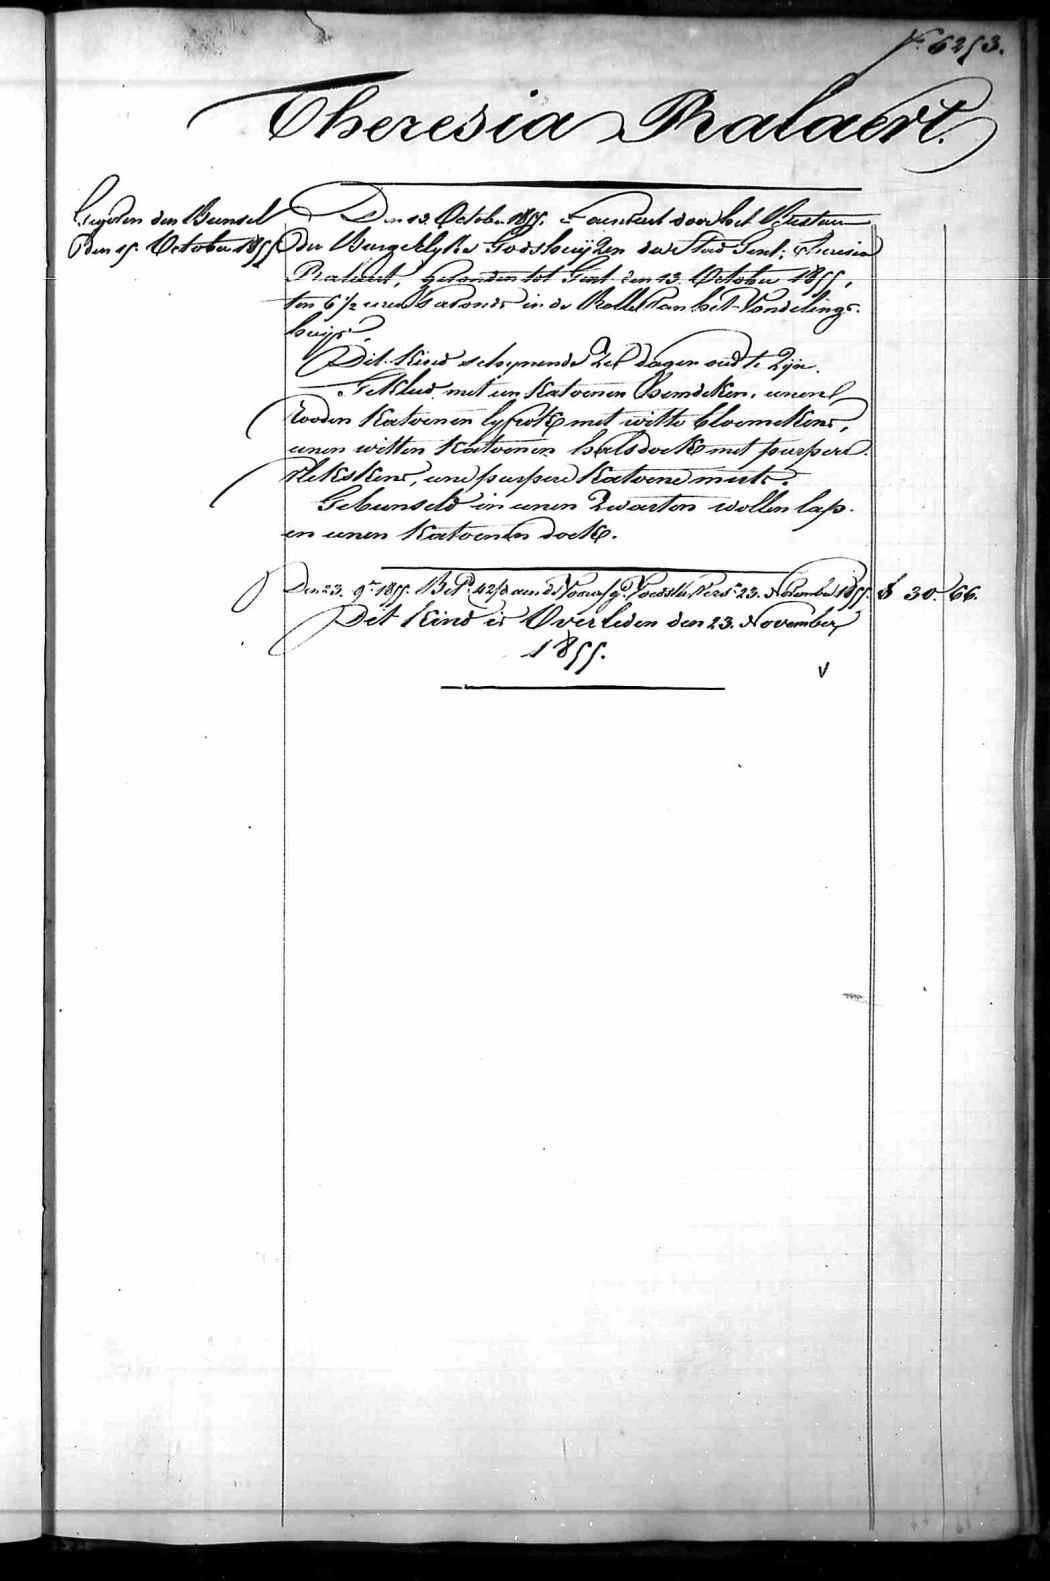 N.º 6253.
Theresia Ralaert.
den Bunsel
den 15. October 1855
Den 13. October 1855. Aenveert door het Bestuer
der Burgerlyke Godshuijzen der Stad Gent; Theresia
Ralaert, gevonden tot Gent den 13. October 1855,
ten 6 1/2 uren S'avonds in de Rolle van het Vondelings-
huijs.
Dit Kind schynende Zes dagen oud te Zijn.
Gekleed met een Katoenen Hemdeken, eenen
rooden Katoenen lyfrok met witte bloemekens,
eenen witten Katoenen halsdoek met purpere
vlekskens, eene purpere Katoene muts.
Gebunseld in eenen Zwarten wollen lap
en eenen Katoenen doek.
Den 23. 9.r 1855. Bet.d 42/d aen de Voedster Vers.n 23. November 1855. f 30. 66.
Dit Kind is Overleden den 23. November
1855.